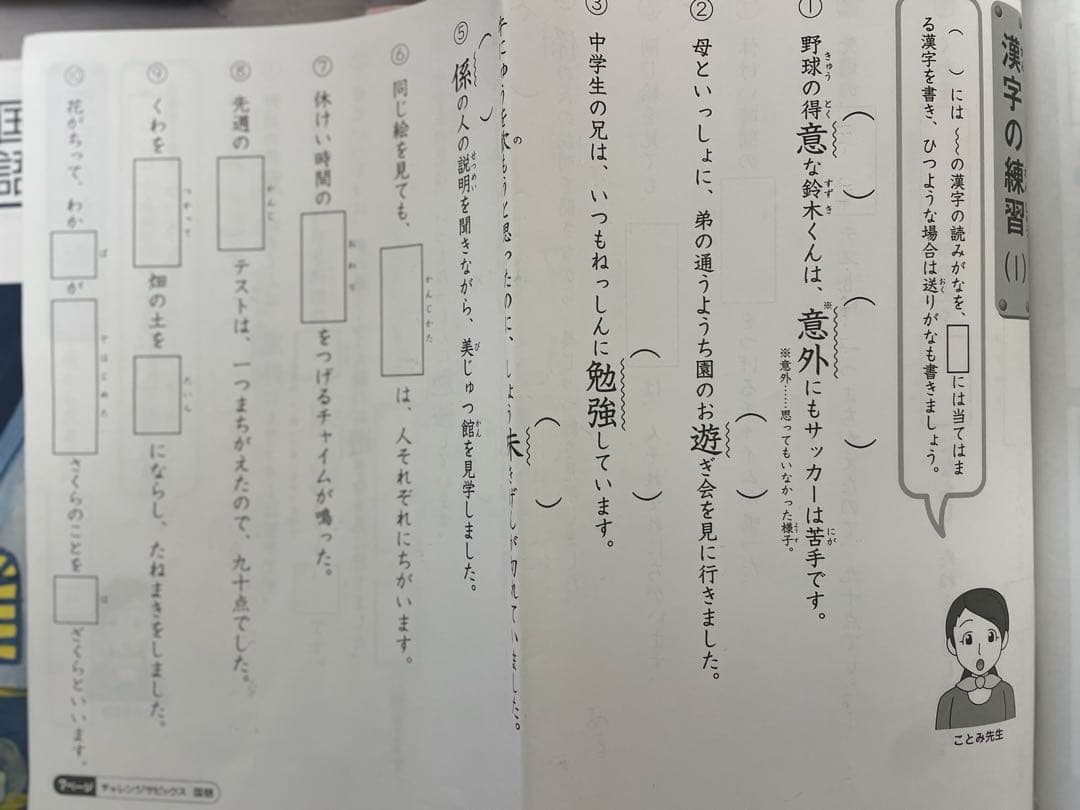 漢字の練習(1)
( )には〜〜の漢字の読みがなを、□には当てはま
る漢字を書き、ひつような場合は送りがなも書きましょう。
おく
ことみ先生
① 野球の得意な鈴木くんは、意外にもサッカーは苦手です。
きゅう とく すずき にが
※意外……思ってもいなかった様子。
② 母といっしょに、弟の通うようち園のお遊ぎ会を見に行きました。
③ 中学生の兄は、いつもねっしんに勉強しています。
にゅうを次もうと思ったのに、しょう きげんが切れていました。
の
⑤ 係の人の説明を聞きながら、美じゅつ館を見学しました。
せつめい び かん
⑥ 同じ絵を見ても、□は、人それぞれにちがいます。
かんじかた
⑦ 休けい時間の□をつげるチャイムが鳴った。
おわり
⑧ 先週の□テストは、一つまちがえたので、九十点でした。
かんじ
⑨ くわを□畑の土を□にならし、たねまきをしました。
つかって たいら
⑩ 花がちって、わか□が□さくらのことを□ざくらといいます。
ば では じめた は
7ページ チャレンジサピックス 国語